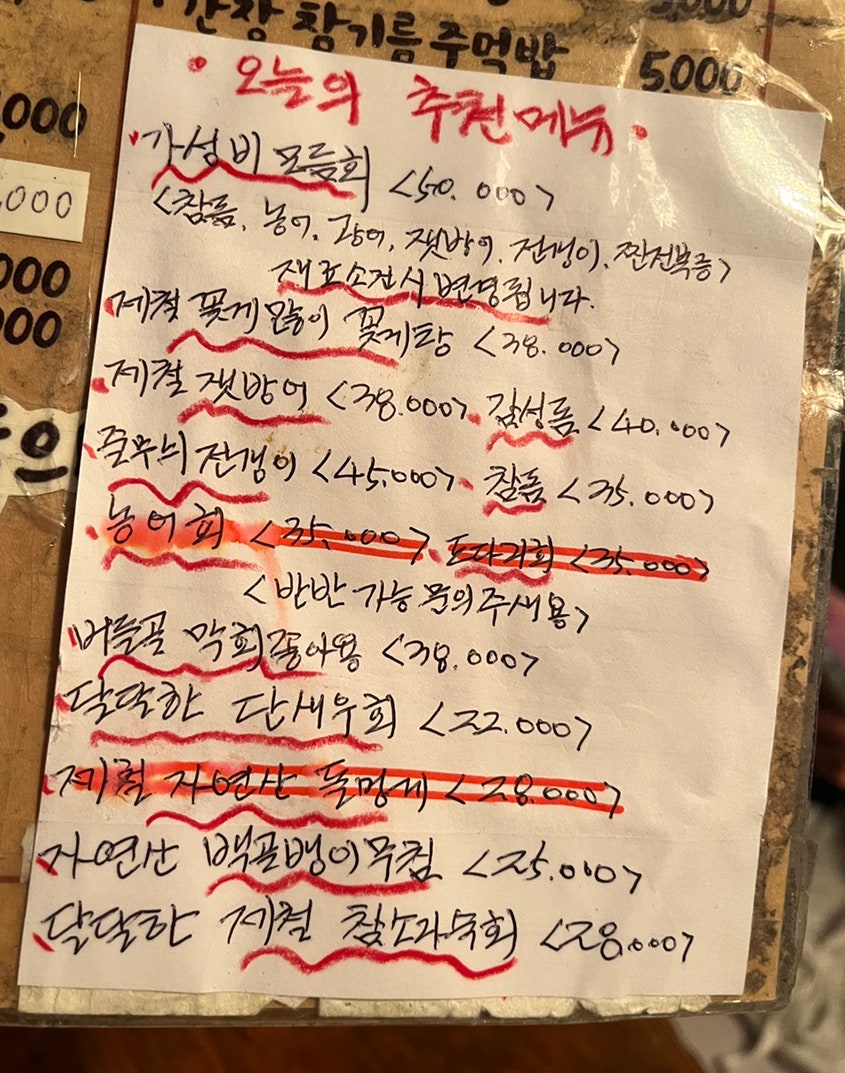 간장 참기름 주먹밥 5,000
,000
,000
000
000
으
• 오늘의 추천메뉴 •
가성비 모듬회 <50.000>
<참돔, 농어, 광어, 잿방어, 전갱이, 찐전복등>
재료소진시 변경됩니다.
제철 꽃게많이 꽃게탕 <38.000>
제철 잿방어 <38.000> 감성돔 <40.000>
줄무늬전갱이 <45.000> 참돔 <35.000>
농어회 <35.000> 도다리회 <35.000>
<반반 가능 문의주세용>
버들골 막회좋아용 <38.000>
달달한 단새우회 <22.000>
제철 자연산 돌멍게 <28.000>
자연산 백골뱅이무침 <25.000>
달달한 제철 참소라숙회 <28.000>